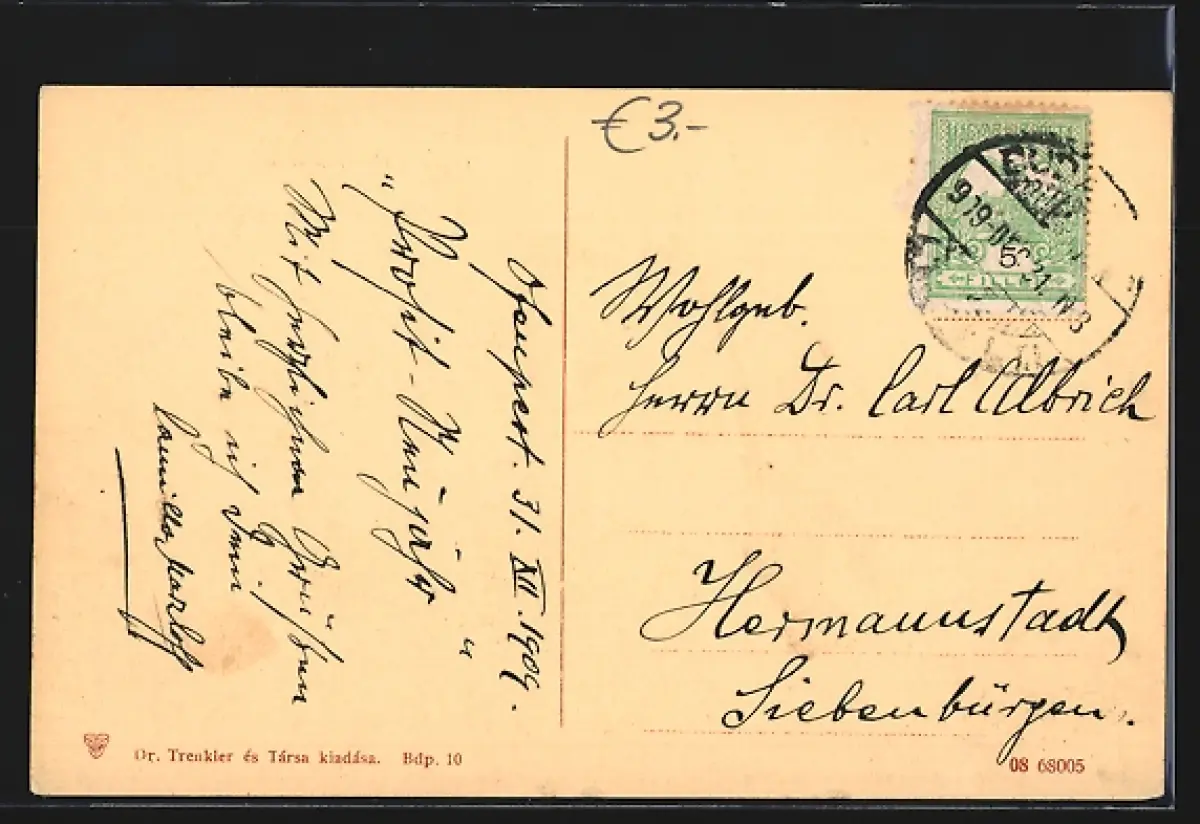 €3.-
Ofenpest. 31. XII. 1909.
"Prosit-Neujahr"
Mit herzlichen Grüßen
bleibe ich Ihnen
Wohlgeb.
Herrn Dr. Carl Albrich
Hermannstadt
Siebenbürgen.
FILLÉR
Dr. Trenkler és Társa kiadása. Bdp. 10
08 68005